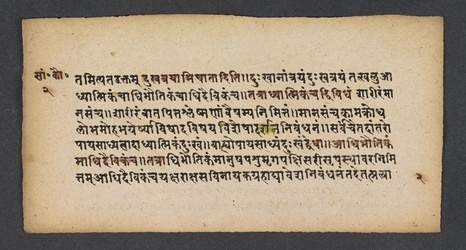 सां॰ कौ॰
तमित्यतउक्तम् दुःखत्रयाभिघातादिति॥दुःखानांत्रयंदुःखत्रयं तत्खलुआ
ध्यात्मिकंचाधिभौतिकंचाधिदैविकंच॥तत्राध्यात्मिकंद्विविधं शारीरंमा
नसंच॥शारीरंवातपित्तश्लेष्मणांवैषम्यनिमित्तं॥मानसंचकामक्रोध
लोभमोहभयेर्ष्याविषादविषयविशेषादर्शननिबंधनं॥सर्वंचैतदांतरो
पायसाध्यत्वादाध्यात्मिकंदुःखं॥बाह्योपायसाध्यंदुःखंद्वेधा॥आधिभौतिक
माधिदैविकंच॥तत्राधिभौतिकंमानुषपशुमृगपक्षिसरीसृपस्थावरनिमि
त्तम्आधिदैविकंचयक्षराक्षसविनायकग्रहाद्यावेशनिबंधनंतदेतत्प्रत्या